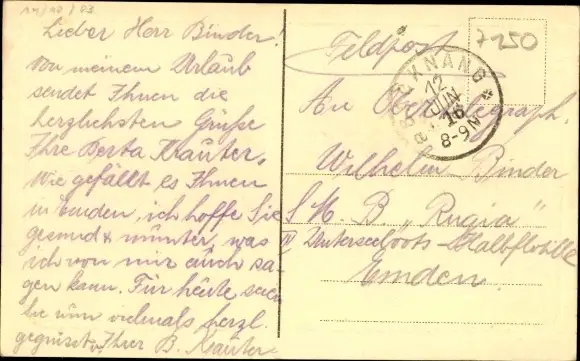 Lieber Herr Binder!
Von meinem Urlaub
sendet Ihnen die
herzlichsten Grüße
Ihre Berta Kräuter.
Wie gefällt es Ihnen
in Emden, ich hoffe Sie
gesund & munter, was
ich von mir auch sa-
gen kann. Für heute seien
Sie nun vielmals herzl.
gegrüßt v. Ihrer B. Kräuter
Feldpost
7250
BACKNANG
12
JUN.
16
8-9N
An Obertelegraph.
Wilhelm Binder
S. M. B. „Rugia“
IV Unterseeboots-Halbflotille
Emden.